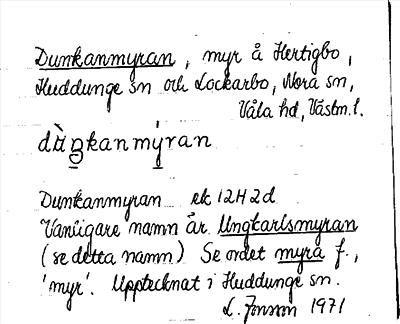 Dunkanmyran, myr å Hertigbo,
Huddunge sn och Lockarbo, Nora sn,
Våla hd, Västm. l.
dùŋkanmýran
Dunkanmyran ek 12H2d
Vanligare namn är Ungkarlsmyran
(se detta namn) Se ordet myra f.,
'myr'. Upptecknat i Huddunge sn.
L. Jonson 1971